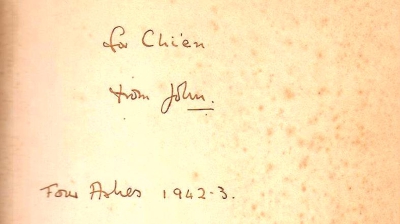 for Chien
from John.
Four Ashes 1942-3.